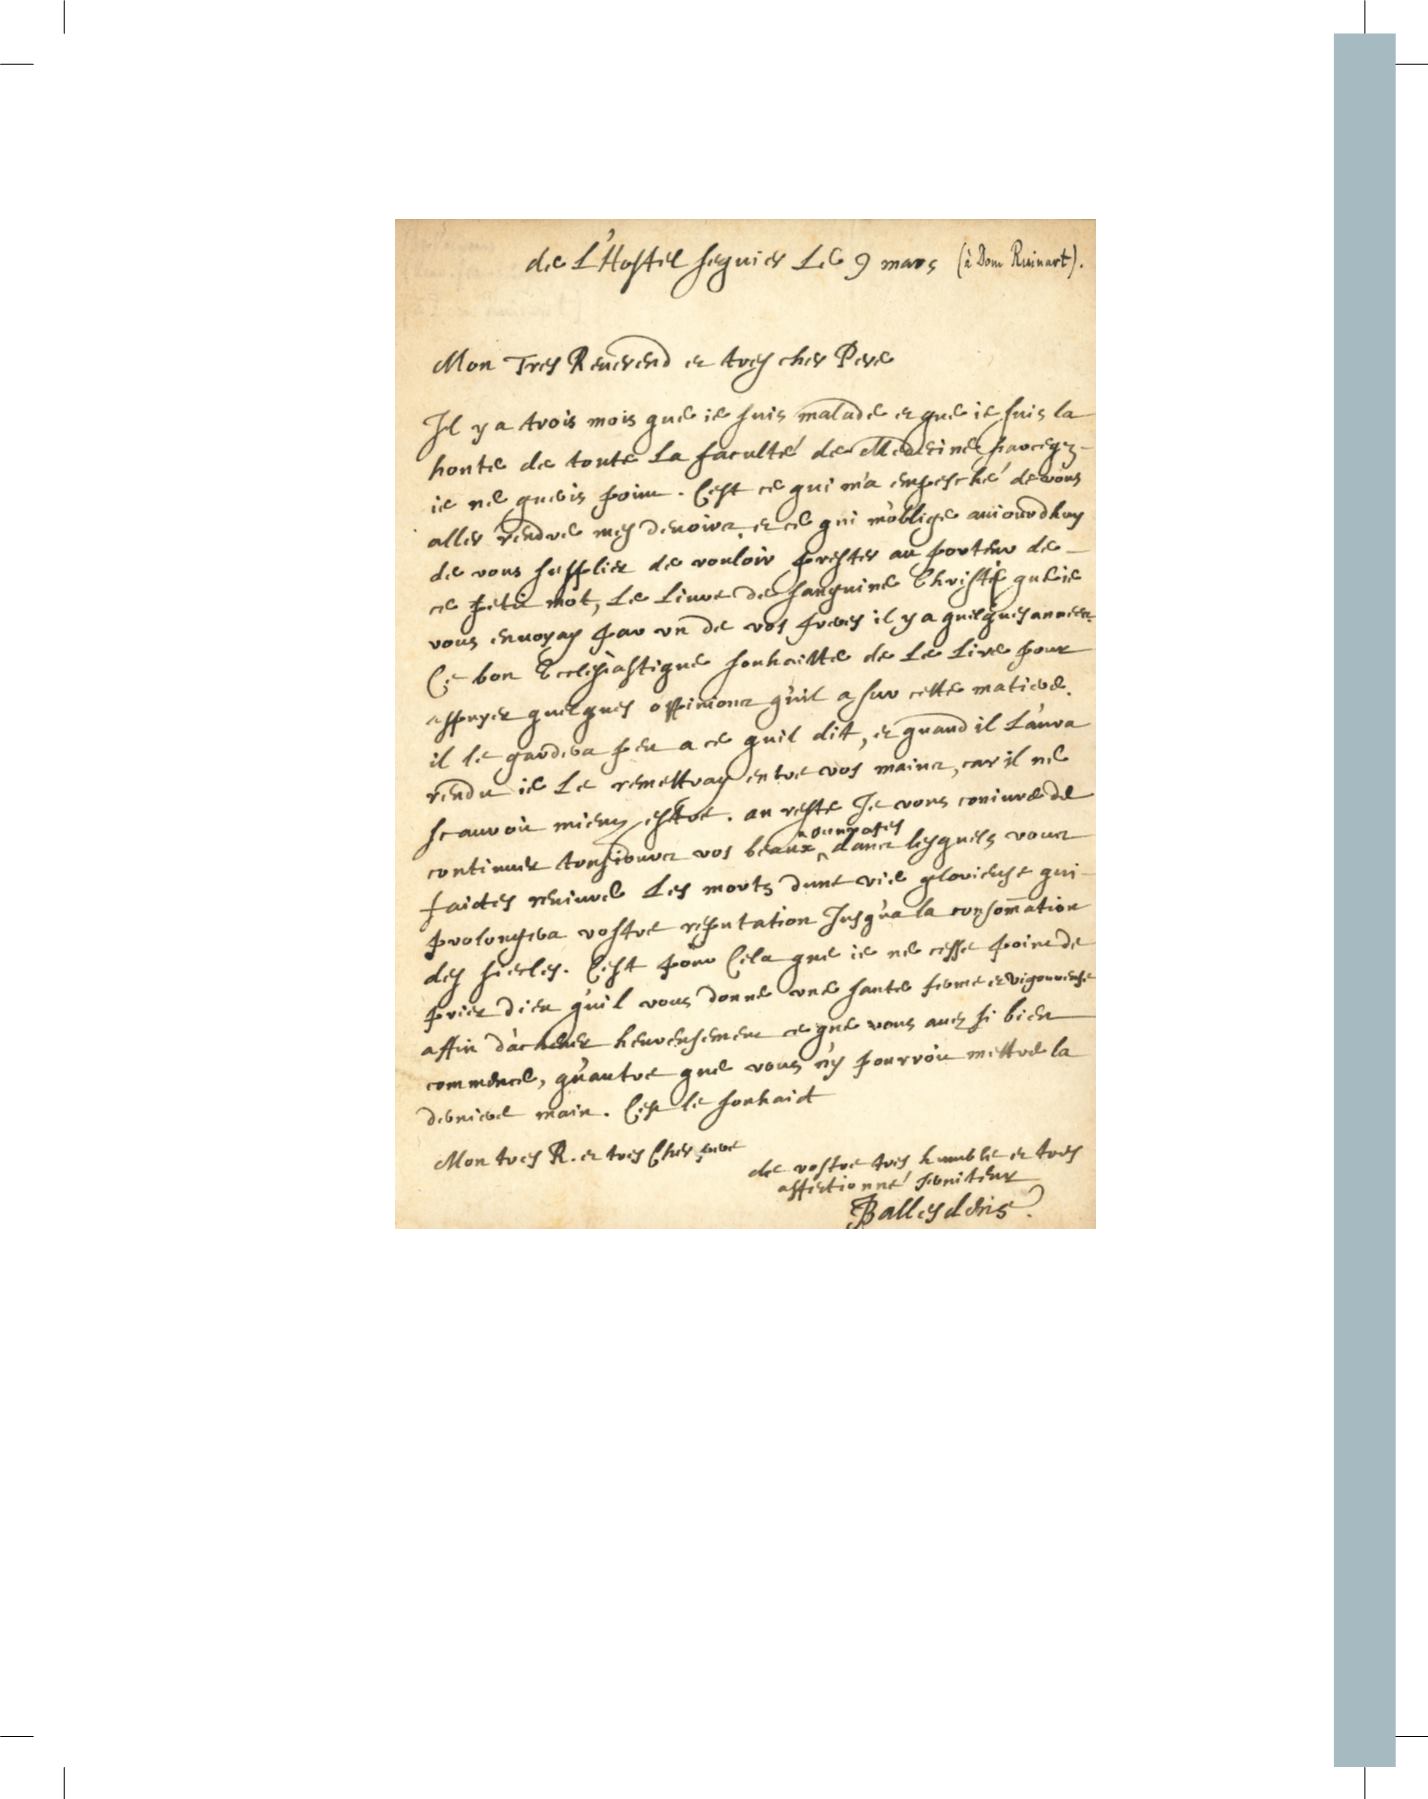 de L'Hostel seguier Le 9 mars (à Dom Ruinart).
Mon Tres Reuerend et tres cher Pere
Il y a trois mois que ie suis malade et que ie suis la
honte de toute La faculté de Medecine parcequ
ie ne gueris point. C'est ce qui m'a empesché de vous
aller rendre mes deuoirs, et ce qui m'oblige auiourdhuy
de vous supplier de vouloir prester au porteur de
ce petit mot, Le Liure de sanguine Christi que ie
vous enuoyay par vn de vos freres il y a quelques années
Ce bon Ecclesiastique souhaitte de Le Lire pour
appuyer quelques oppinions qu'il a sur cette matiere.
il le gardera peu a ce quil dit, et quand il L'aura
rendu ie Le remettray entre vos mains, car il ne
scauroit mieux estre. au reste Je vous coniure de
continuer tousiours vos beaux ouurages dans lesquels vous
faictes reuiure Les morts dune vie glorieuse qui
prolongera vostre reputation Jusqu'a la consom̄ation
des siecles. C'est pour Cela que ie ne cesse point de
prier dieu qu'il vous donne vne santé ferme et vigoureuse
affin d'acheuer heureusement ce que vous auez si bien
commencé, qu'autre que vous n'y pourroit mettre la
derniere main. C'est le souhait
Mon tres R. et tres Cher pere
de vostre tres humble et tres
affectionné seruiteur
Ballesdens